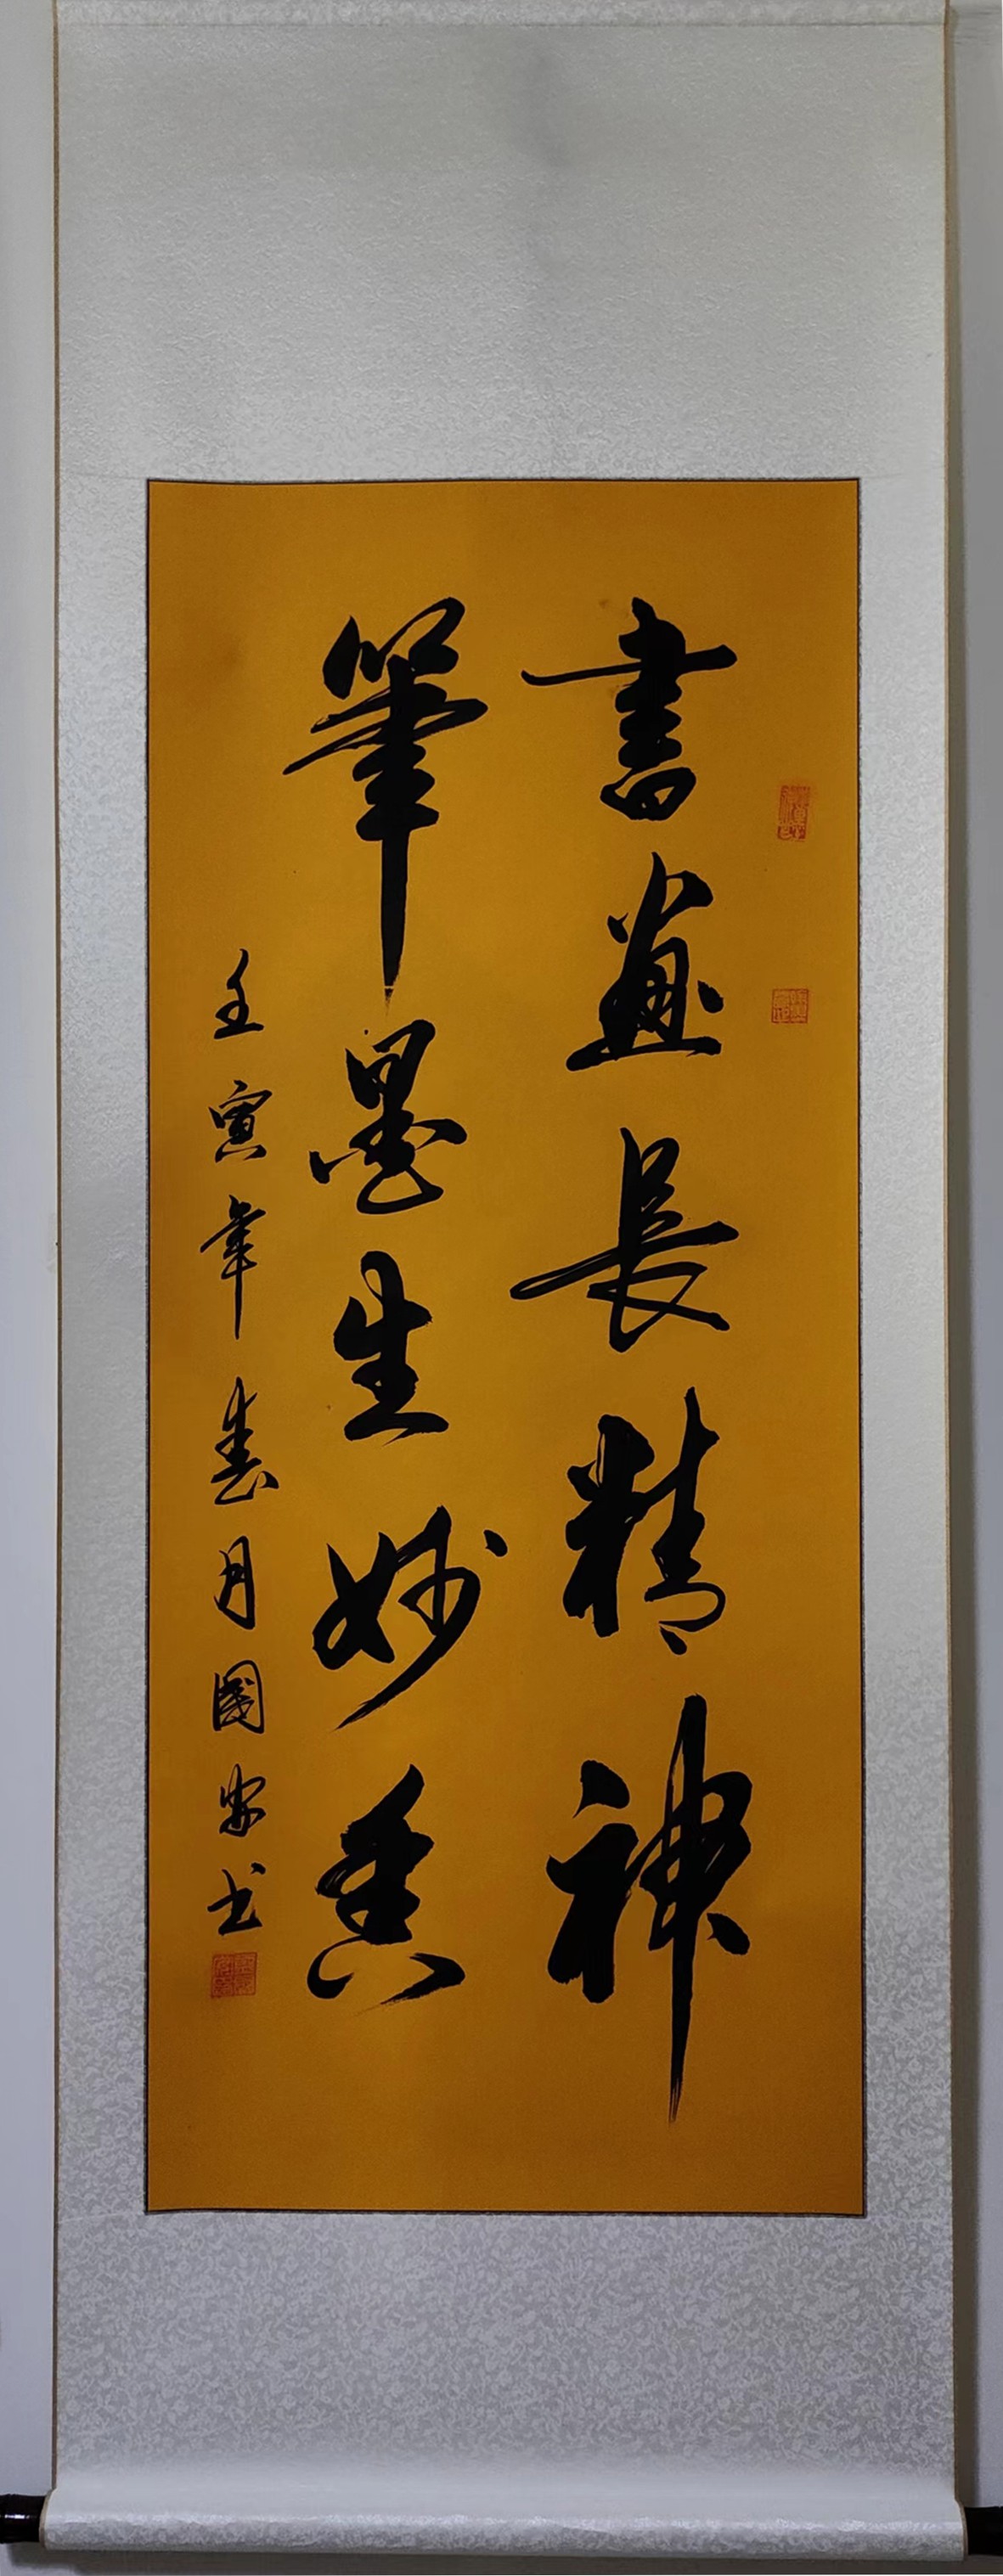 書畫長精神
筆墨生妙香
壬寅年春月國安书